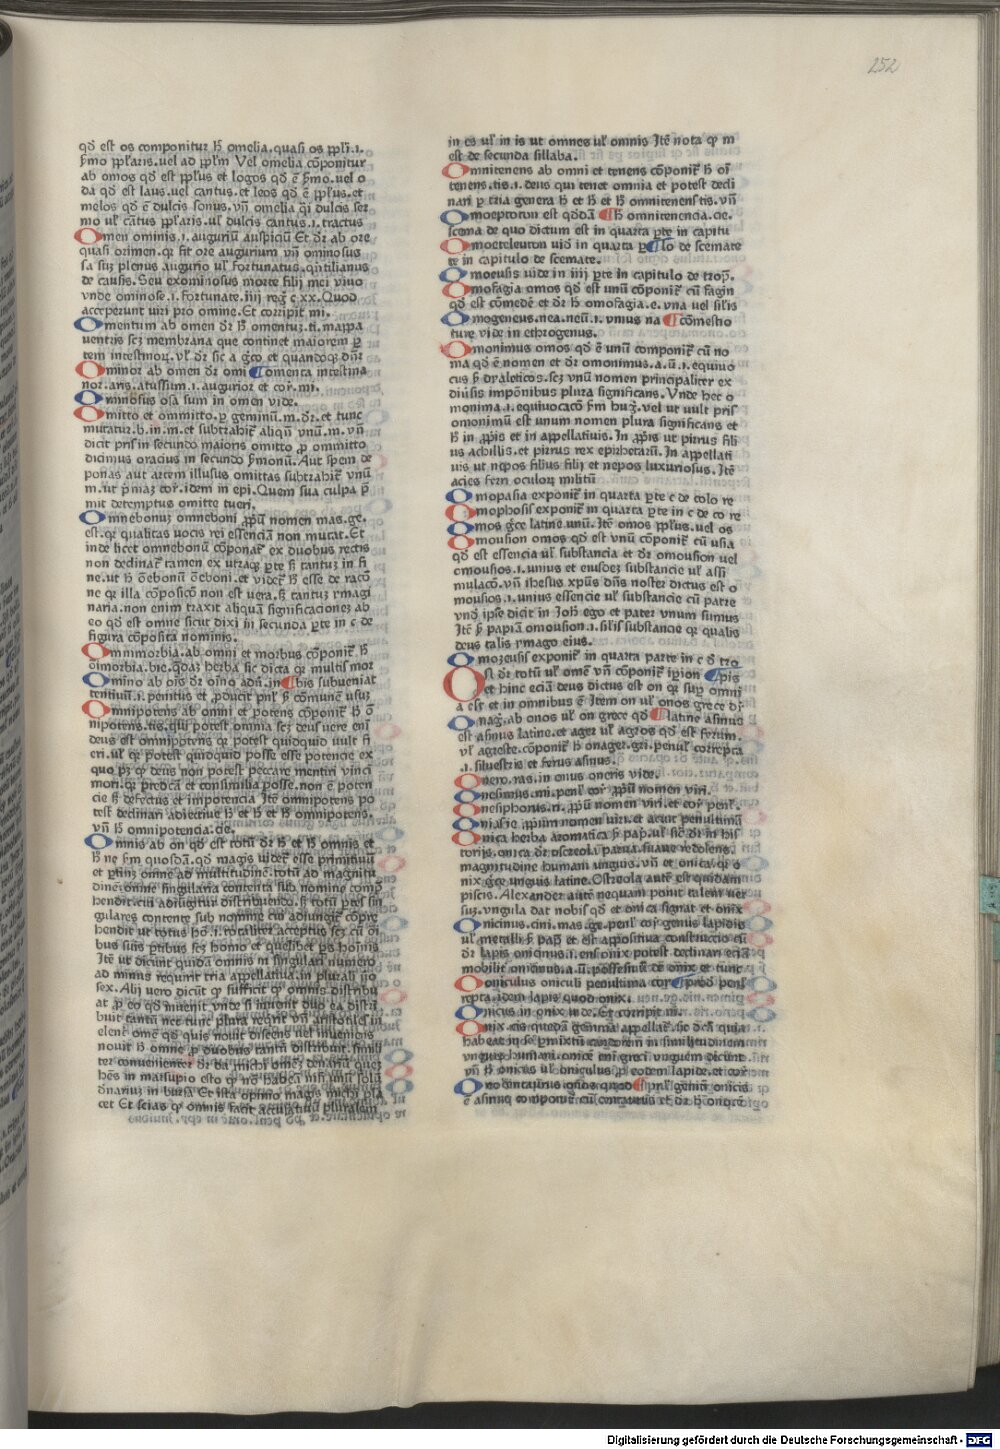 252
qd est os componitur h omelia, quasi os ppli .i.
smo pplaris. uel ad pplm Vel omelia cōponitur
ab omos qd est pplus et logos qd ē smo. uel o
da qd est laus. uel cantus. et leos qd ē pplus. et
melos qd ē dulcis sonus. vn̄ omelia q̄i dulcis ser
mo ul' cātus pplaris. ul' dulcis cantus .i. tractus
Omen ominis .i. auguriū auspiciū Et dr ab ore
quasi orimen. qr fit ore augurium vn̄ ominosus
sa suz plenus augurio ul' fortunatus. quitilianus
de causis. Seu exominosus morte filij mei viuo
vnde ominose .i. fortunate. iiij reg c xx. Quod
acceperunt uiri pro omine. Et corripit mi.
Omentum ab omen dr h omentuz. ti. mappa
uentris sez membrana que continet maiorem p
tem intestinoz. vl' dr sic a gco et quandoqz dr
Ominor ab omen dr omi ¶omenta intestina
nor. aris. atus sum .i. augurior et cor. mi.
Ominosus osa sum in omen vide.
Omitto et ommitto. p geminū .m. dr. et tunc
mutatur .b. in .m. et subtrahit aliqn̄ vnū .m. vn̄
dicit pris in secundo maioris omitto p ommitto
dicimus oracius in secundo smonū. Aut spem de
ponas aut artem illusus omittas subtrahit vnū
.m. ut pmaz cor. idem in epi. Quem sua culpa p
mit deceptus omitte tueri.
Omnebonuz omneboni ppū nomen mas. ge.
est. qr qualitas uocis rei essenciam non mutat. Et
inde licet omnebonū cōponat ex duobus rectis
non declinat tamen ex utraqz pte s tantuz in fi
ne. ut h ōebonū ōeboni. et videt h esse de racō
ne qr illa cōposicō non est uera. s tantuz ymagi
naria. non enim traxit aliquā significacionez ab
eo qd est omne sicut dixi in secunda pte in c de
figura cōposita nominis.
Omnimorbia. ab omni et morbus cōponit h
ōimorbia. bie. qdaz herba sic dicta qr multis mor
Omino ab oīs dr oīno adū. in ¶bis subueniat
tentiuū .i. penitus et pducit pnl' s cōmunē usuz
Omnipotens ab omni et potens cōponit h ō
nipotens. tis. qui potest omnia sez deus uere eni
deus est omnipotens qr potest quidquid uult fi
eri. ul' qr potest quidquid posse esse potencie ex
quo pz qr deus non potest peccare mentiri vinci
mori. qr predcā et consimilia posse. non ē poten
cie s defectus et impotencia Itē omnipotens po
test declinari adiectiue h et h et h omnipotens.
vn̄ h omnipotencia. cie.
Omnis ab on qd est totū dr h et h omnis et
h ne sm quosdā. qd magis uidet esse primitiuū
et ptinz omne ad multitudinē. totū ad magnitu
dinē. omne singularia contenta sub nomine comp
hendit. cui adiungitur distribuendo. s totū ptes sin
gulares contente sub nomine cui adiungit cōpre
hendit ut totus hō .i. totaliter acceptus sez cū oi
bus suis ptibus sez homo et quelibet ps hominis
Itē ut dicunt quidā omnis in singulari numero
ad minus requirit tria appellatiua. in plurali uo
sex. Alij uero dicūt qr sufficit qr omnis distribu
at p eo qd inuenit. vnde si inuenit duo ea distri
buit tantū nec tunc plura reqrit vn̄ aristotiles in
elenc omē qd quis nouit discens uel inueniens
nouit h omne p duobus tantū distribuit. simili
ter conuenienter dr da michi omēz denariū quez
hēs in marsupio esto qr nō habeā nisi unū solū
dnariuz in bursa Et ista opinio magis michi pla
cet Et scias qr omnis facit accusatiuū pluralem
in es ul' in is ut omnes ul' omnis Itē nota qr m
est de secunda sillaba.
Omnitenens ab omni et tenens cōponit h oī
tenens. tis .i. deus qui tenet omnia et potest decli
nari p tria genera h et h et h omnitenens tis. vn̄
Omoeptoton est qdōā ¶h omnitenencia. cie.
scema de quo dictum est in quarta pte in capitu
Omoeteleuton uid in quarta p ¶lo de scemate
te in capitulo de scemate.
Omoeusis uide in iiij pte in capitulo de trop.
Omofagia omos qd est unū cōponit cū fagin
qd est cōmedē et dr h omofagia. e. vna uel silis
Omogeneus. nea. neū .i. vnius na ¶cōmestio
ture vide in ethrogenus.
Omonimus omos qd ē unū componit cū no
ma qd ē nomen et dr omonimus. a. ū .i. equiuo
cus s dyaleticos. sez vnū nomen principaliter ex
diuisis impōnibus plura significans. Vnde hec o
monima .i. equiuocacō sm hug. vel ut uult pris
omonimū est unum nomen plura significans et
h in ppis et in appellatiuis. In ppris ut pirrus fili
us achillis. et pirrus rex epirhetarū. In appellati
uis ut nepos filius filij et nepos luxuriosus. Itē
acies ferri oculoz militū
Omopasia exponit in quarta pte c de colo re
Omophosis exponit in quarta pte in c de co re
Omos gce latine unū. Itē omos pplus. uel os
Omousion omos qd est vnū cōponit cū usia
qd est essencia ul' substancia et dr omousion uel
omousios .i. unius et eiusdez substancie ul' assi
mulacō. vn̄ ihesus xpus dn̄s noster dictus est o
mousios .i. unius essencie ul' substancie cū patre
vnd ipse dicit in Joh ego et pater vnum sumus
Itē s papiā omousion .i. silis substancie qr qualis
deus talis ymago eius.
Omozeusis exponit in quarta parte in c d tro
On dr totū ul' omē vn̄ cōponit ipion ¶pis
et hinc eciā deus dictus est on qr sup omni
a est et in omnibus ē Item on ul' onos grece dr
Onag. ab onos ul' on grece qd ¶latine asinus
est asinus latine. et ager ul' agros qd est ferum.
vl' agreste. cōponit h onager. gri. penul' correpta
.i. siluestris et ferus asinus.
Onero. ras. in onus oneris vide.
Onesimus. mi. penl' cor ppū nomen viri.
Onesiphorus. ri. ppū nomen viri. et cor penl'.
Onias ie ppium nomen uiri. et acuit penultimū
Onica herba aromatica s pap. ul' sic dr in his
torijs. onica dr ostreola parua suaue redolens.
magnitudine humani unguis. vn̄ et onica. qr o
nix gce unguis latine. Ostreola autē est quidam
piscis. Alexander autē nequam ponit talem uer
suz. vngula dat nobis qd et onica signat et onix
Onicinus. cini. mas. ge. penl' cor genus lapidis
ul' metalli s pap et est appositiua construccio cū
dr lapis onicinus .i. ens onix potest declinari eciā
mobilit onicinus. a. ū. possessiuū de onix et tunc
Oniculus oniculi penultima cor ¶prod penl'
repta. idem lapis quod onix.
Onicus in onix uide. Et corripit ni.
Onix cis quedā gemma appellat. sic dcā quia
habeat in se pmixtū candorem in similitudinem
vnguis humani. onicē eni greci vnguem dicunt
vn̄ h onices ul' oniculus p eodem lapide. et cor
Onocentaurus onos quod ¶pnl' genitiui onicis
ē asinuq componit cū centaurus et dr h onoce
Digitalisierung gefördert durch die Deutsche Forschungsgemeinschaft - DFG